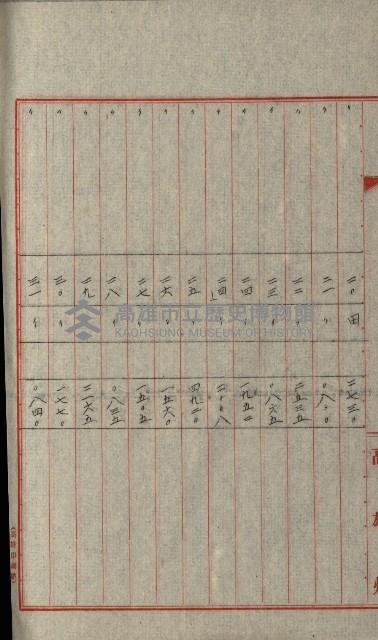 〃 二〇 田 二七三〇
〃 二一 〃 〇八〇〇
〃 二二 〃 二五三五
〃 二三 〃 〇八六五
〃 二四 〃 一九五二
〃 二四 〃 二〇〇八
〃 二五 〃 四九二〇
〃 二六 〃 一五六〇
〃 二七 〃 一五〇五
〃 二八 〃 〇八三五
〃 二九 〃 二一六五
〃 三〇 〃 一七七〇
〃 三一 〃 〇八四〇
高雄市立歷史博物館
KAOHSIUNG MUSEUM OF HISTORY
高雄州